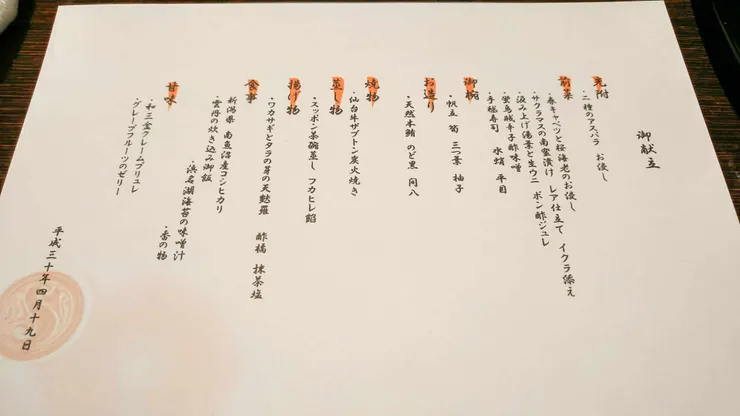 御献立
先附
・二種のアスパラ お浸し
前菜
・春キャベツと桜海老のお浸し
・サクラマスの南蛮漬け レア仕立て イクラ添え
・汲み上げ湯葉と生ウニ ポン酢ジュレ
・蛍烏賊辛子酢味噌
・手毬寿司 水蛸 平目
御椀
・帆立 筍 三つ葉 柚子
お造り
・天然本鮪 のど黒 間八
焼物
・仙台牛ザブトン炭火焼き
蒸し物
・スッポン茶碗蒸し フカヒレ餡
揚げ物
・ワカサギとタラの芽の天麩羅 酢橘 抹茶塩
食事
新潟県 南魚沼産コシヒカリ
・雲丹の炊き込み御飯
・浜名湖海苔の味噌汁
・香の物
甘味
・和三盆クレームブリュレ
・グレープフルーツのゼリー
平成三十年四月十九日